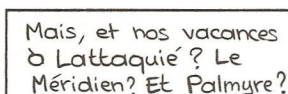 Mais, et nos vacances
à Lattaquié ? Le
Méridien ? Et Palmyre ?